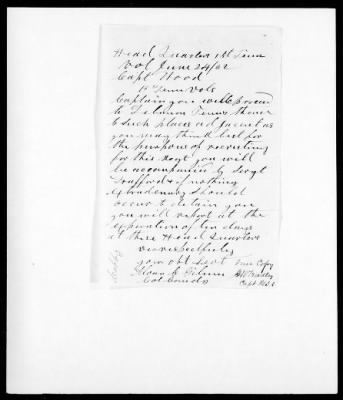 Head Quarters 1st Tenn
Vol June 24/62
Capt Wood
1st Tenn Vols
Captain you will proceed
to Tenn thence
& such places adjacent as
you may think best for
the purpose of recruiting
for this Regt you will
be accompanied by Sergt
Trafford & if nothing
extraordinary should
occur to detain you
you will report at the
expiration of ten days
at these Head Quarters
very respectfully
your obt Servt
True Copy
Col Comdg
Capt